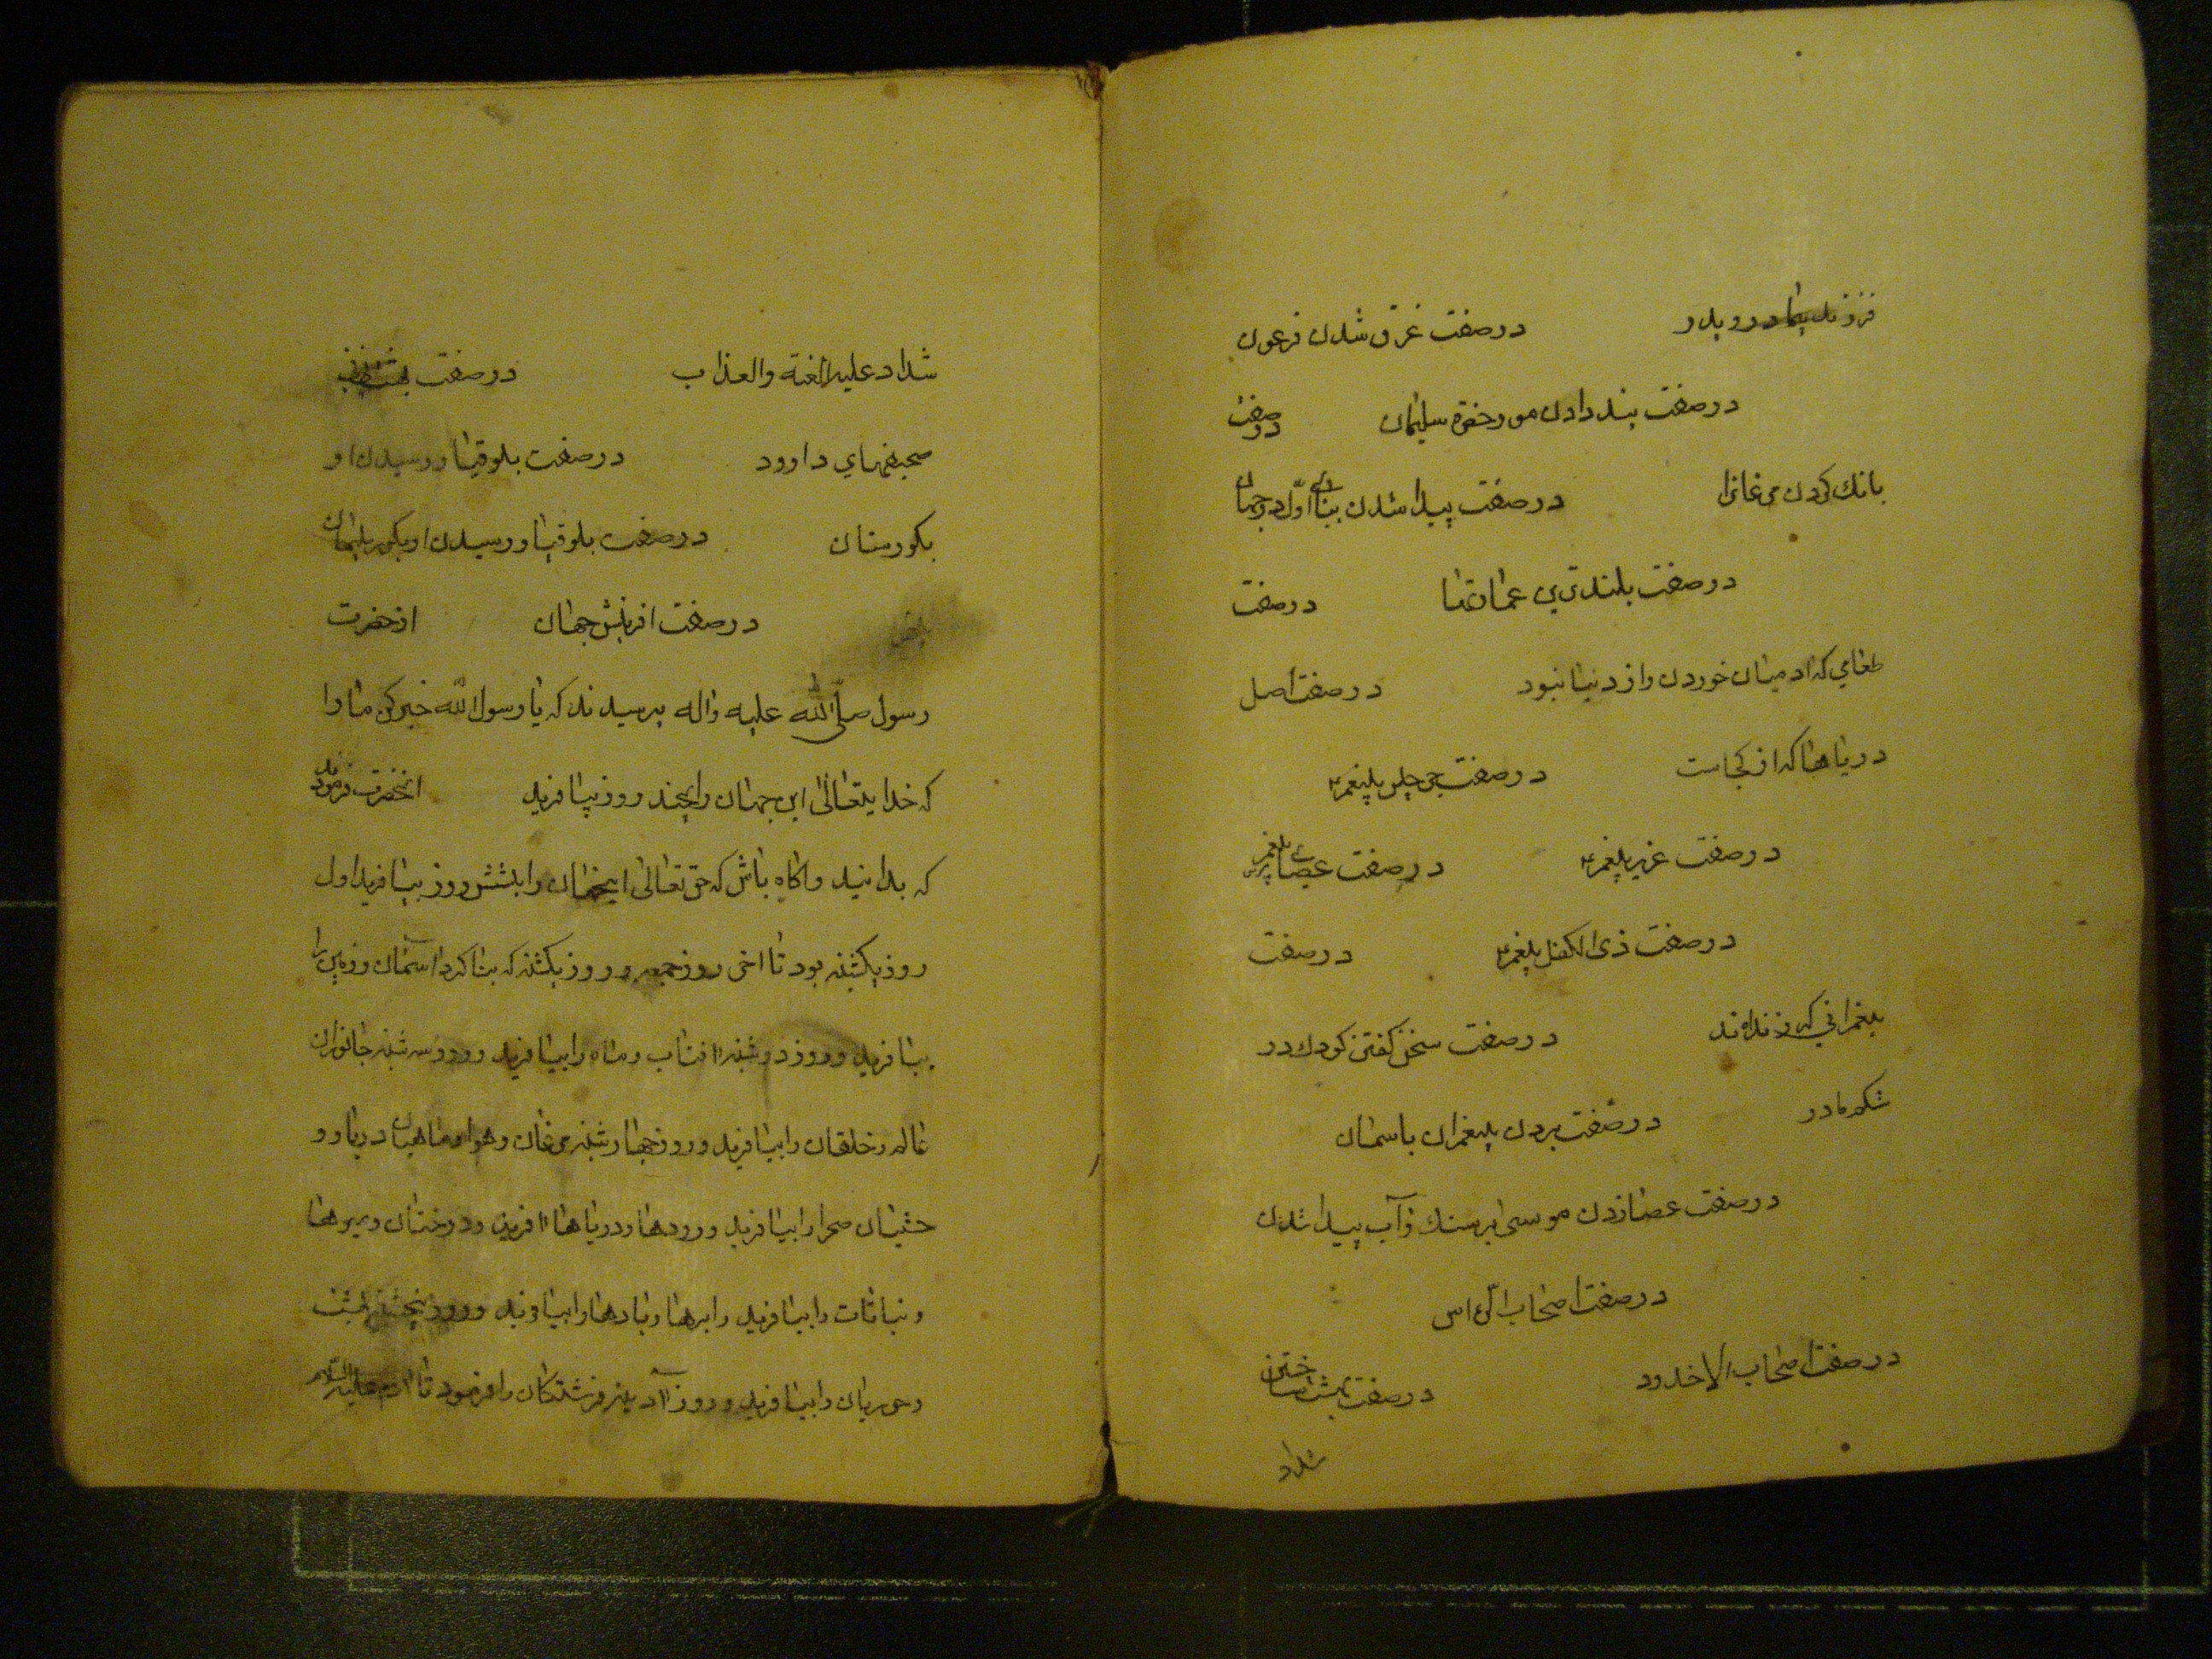 فرزند بیمادر و پدر در صفت غرق شدن فرعون
در صفت پند دادن مور حضرة سلیمان در صفت
بانك کردن مرغانرا در صفت پیدا شدن بنای اوّل در جهان
در صفت بلندترین عمارتها در صفت
طعامی که ادمیان خوردن و از دنیا نبود در صفت اصل
دریاها که از کجاست در صفت جرجیس پیغمبر
در صفت عزیر پیغمبر در صفت عیسای پیغمبر
در صفت ذی الکفل پیغمبر در صفت
پیغمبرانی که زنده‌اند در صفت سخن گفتن کودك در
شکم مادر در صفت بردن پیغمبران باسمان
در صفت عصا زدن موسی بر سنك و آب پیدا شدن
در صفت اصحاب الرّاس
در صفت اصحاب الاخدود در صفت بهشت ساختن
شداد
شداد علیه الغنة والعذاب در صفت
صحیفهای داوود در صفت بلوقیا و رسیدن او
بکورستان در صفت بلوقیا و رسیدن او بکور سلیمان
در صفت افرینش جهان از حضرت
رسول صلّی اللّه علیه واله پرسیدند که یا رسول اللّه خبر کن ما را
که خدایتعالی این جهان را بچند روز بیافرید انحضرت فرمود
که بدانید و اکاه باش که حق تعالی اینجهان را بشش روز بیافرید اول
روز یکشنبه بود تا اخر روز جمعه و روز یکشنبه که بنا کرد آسمان و زمین را
بیافرید و روز دوشنبه افتاب و ماه را بیافرید و روز سه شنبه جانوران
عالم و خلقان را بیافرید و روز چهارشنبه مرغان و هوا و ماهیان دریا و و
حشیان صحرا را بیافرید و رودها و دریاها افرید و درختان و میوها
و نباتات را بیافرید و ابرها و بادها را بیافرید و روز پنجشنبه بهشت
و حوریان را بیافرید و روز آدینه فرشتکان را فرمود تا ادم علیه السّلام